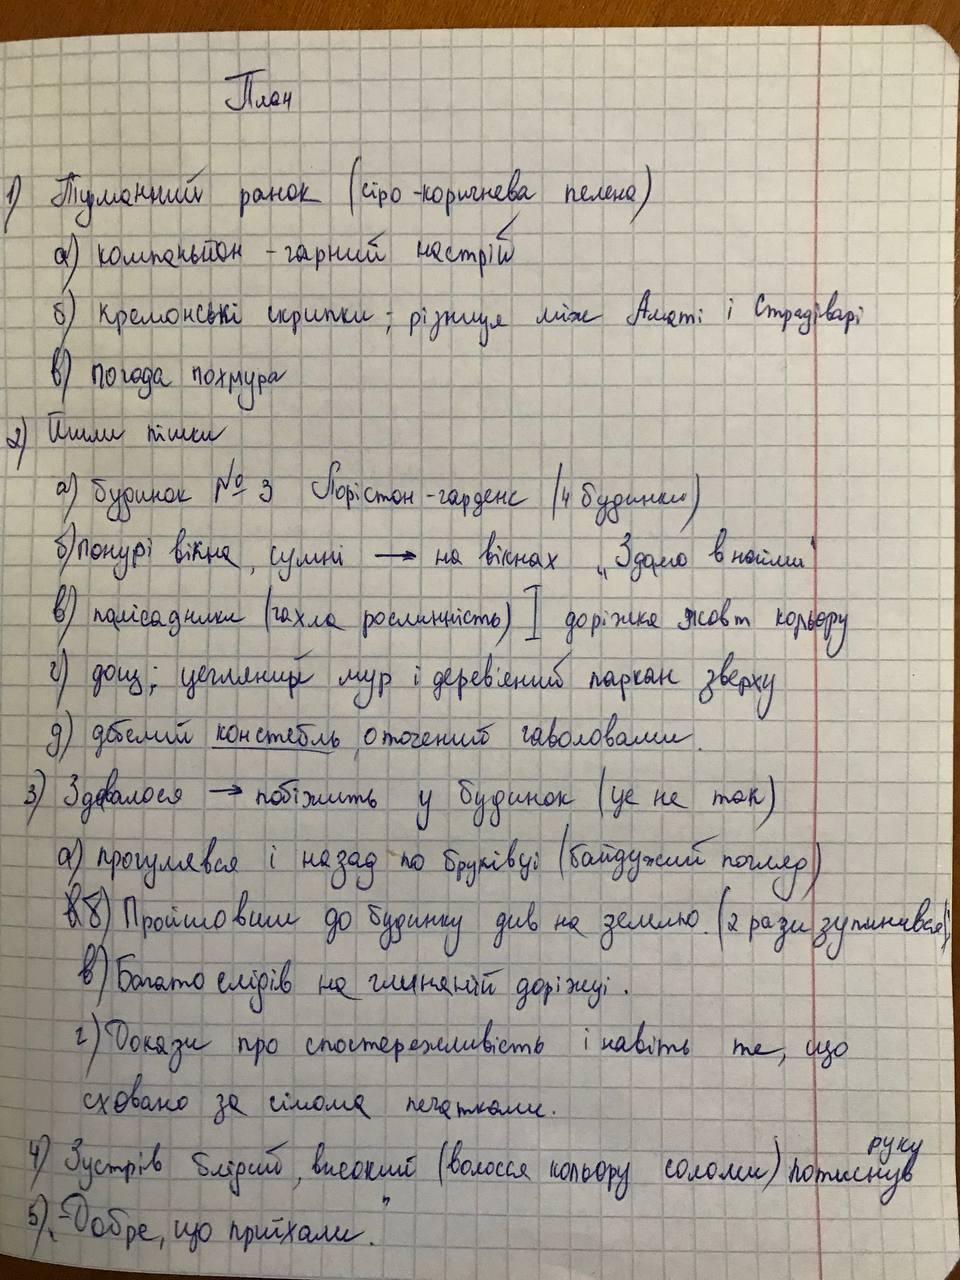 План
1) Туманний ранок (сіро-коричнева пелена)
а) компаньйон - гарний настрій
б) кремонські скрипки; різниця між Аматі і Страдіварі
в) погода похмура
2) Йшли пішки
а) будинок № 3 Лорістон-гарденс (4 будинки)
б) понурі вікна, сумні → на вікнах „Здамо в найми"
в) палісадники (чахла рослинність) доріжка жовт кольору
г) дощ; цегляний мур і дерев'яний паркан зверху
д) дебелий констебль, оточений гаволовами.
3) Здавалося → побіжить у будинок (це не так)
а) прогулявся і назад по бруківці (байдужий погляд)
б) Пройшовши до будинку див на землю. (2 рази зупинився)
в) Багато слідів на глиняній доріжці.
г) Докази про спостережливість і навіть те, що
сховано за сімома печатками.
4) Зустрів блідий, високий (волосся кольору соломи) потиснув руку
5) „-Добре, що приїхали."